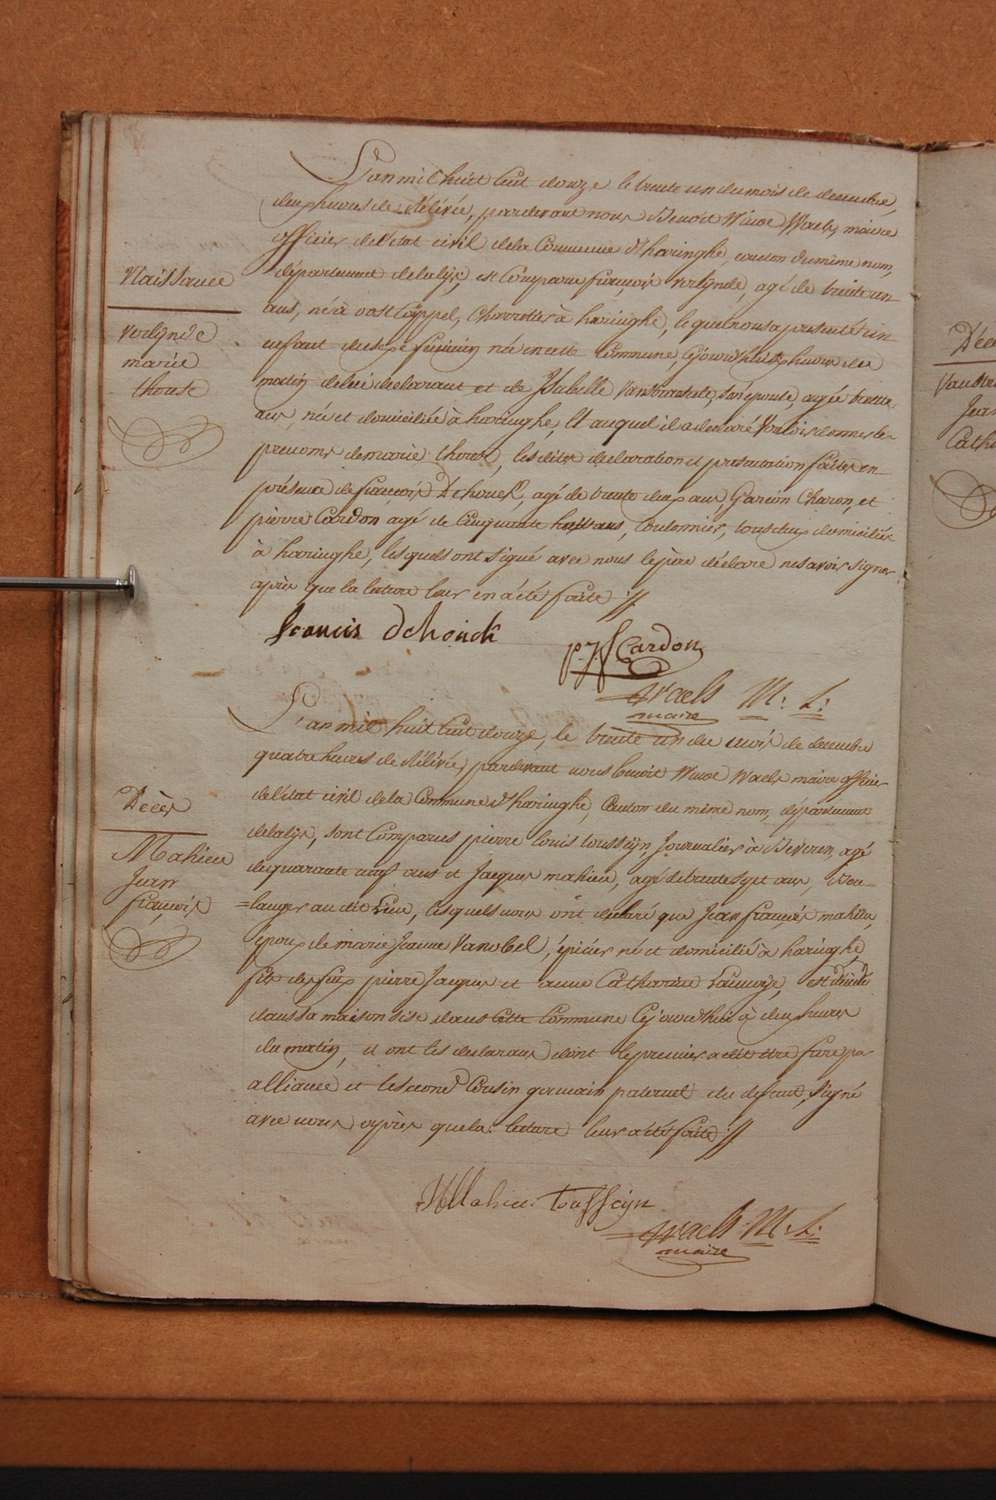 L'an mil huit cent douze le trente un du mois de decembre,
deux heures de rélevée, pardevant nous Benoit Winoc Waels, maire
officier de l'état civil de la Commune d'haringhe, canton du même nom,
Naissance
département de la lÿs, est Comparu françois verlÿnde, agé de trente un
ans, né à oost Cappel, Charretier à haringhe, lequel nous a presenté un
Verlÿnde
marie
therese
enfant du sexe feminin née en cette Commune, cejourd'hui heures du
matin de lui declarant et de Isabelle son épouse, agée trente
ans, née et domiciliée à haringhe, Et auquel il a declaré vouloir donner le
prenoms de marie therese, les dites declaration et presentation faites en
présence de françois Dehouck, agé de trente deux ans, Garcon Charon, et
pierre Cardon agé de Cinquante huit ans, tous deux domiciliés
à haringhe, lesquels ont signé avec nous le père déclare ne savoir signer
après que la lecture leur en a été faite ://
francis dehouck
p. J. Cardon
Waels M: L:
maire
L'an mil huit cent douze, le trente un du mois de decembre
quatre heures de rélevée, pardevant nous benoit Winoc Waels maire officier
de l'état civil de la Commune d'haringhe, Canton du même nom, département
Décès
de la lÿs, sont Comparus pierre louis tousseÿn, Journalier à Beveren, agé
Mahieu
Jean
françois
de quarante neuf ans et Jacques mahieu, agé de trente sept ans, Bou-
=langer au dit Lieu, lesquels nous ont declaré que Jean françois mahieu,
époux de marie Jeanne Vanobel, épicier né et domicilié à haringhe,
fils de feux pierre Jacques et anne Catharine est décédé
dans sa maison sise dans Cette Commune Cejourd'hui à deux heures
du matin, et ont les declarans dont le premier a dit être frere par
alliance et le second Cousin germain paternel du defunt, signé
avec nous après que la lecture leur a été faite ://
Mahieu tousseÿn
Waels M. L:
maire
Décè
Jean
Cath